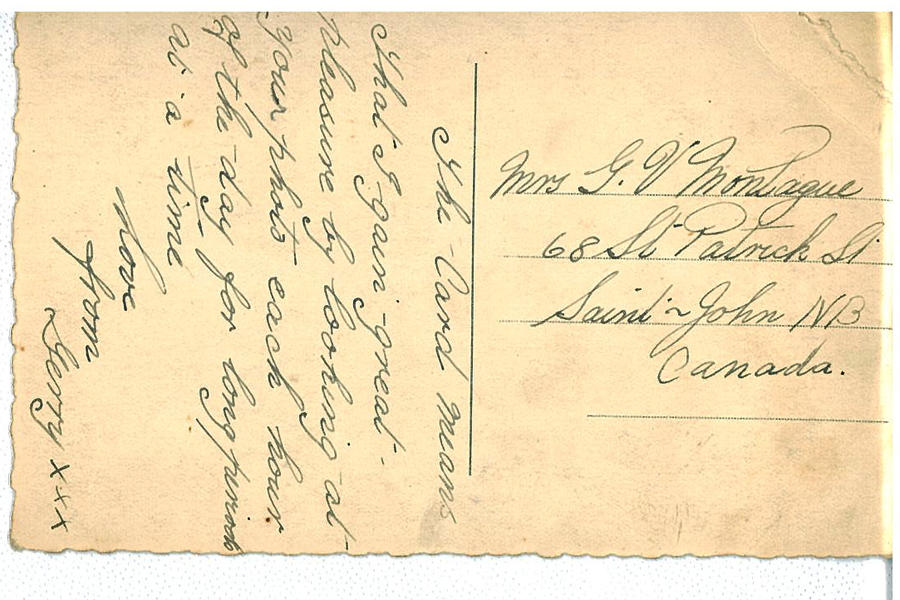 The Card Means
That I gain great
pleasure by looking at
your photo each hour
of the day for long periods
at a time
Love
from
Gerry xxx
Mrs G. V Montague
68 St Patrick St
Saint-John NB
Canada.